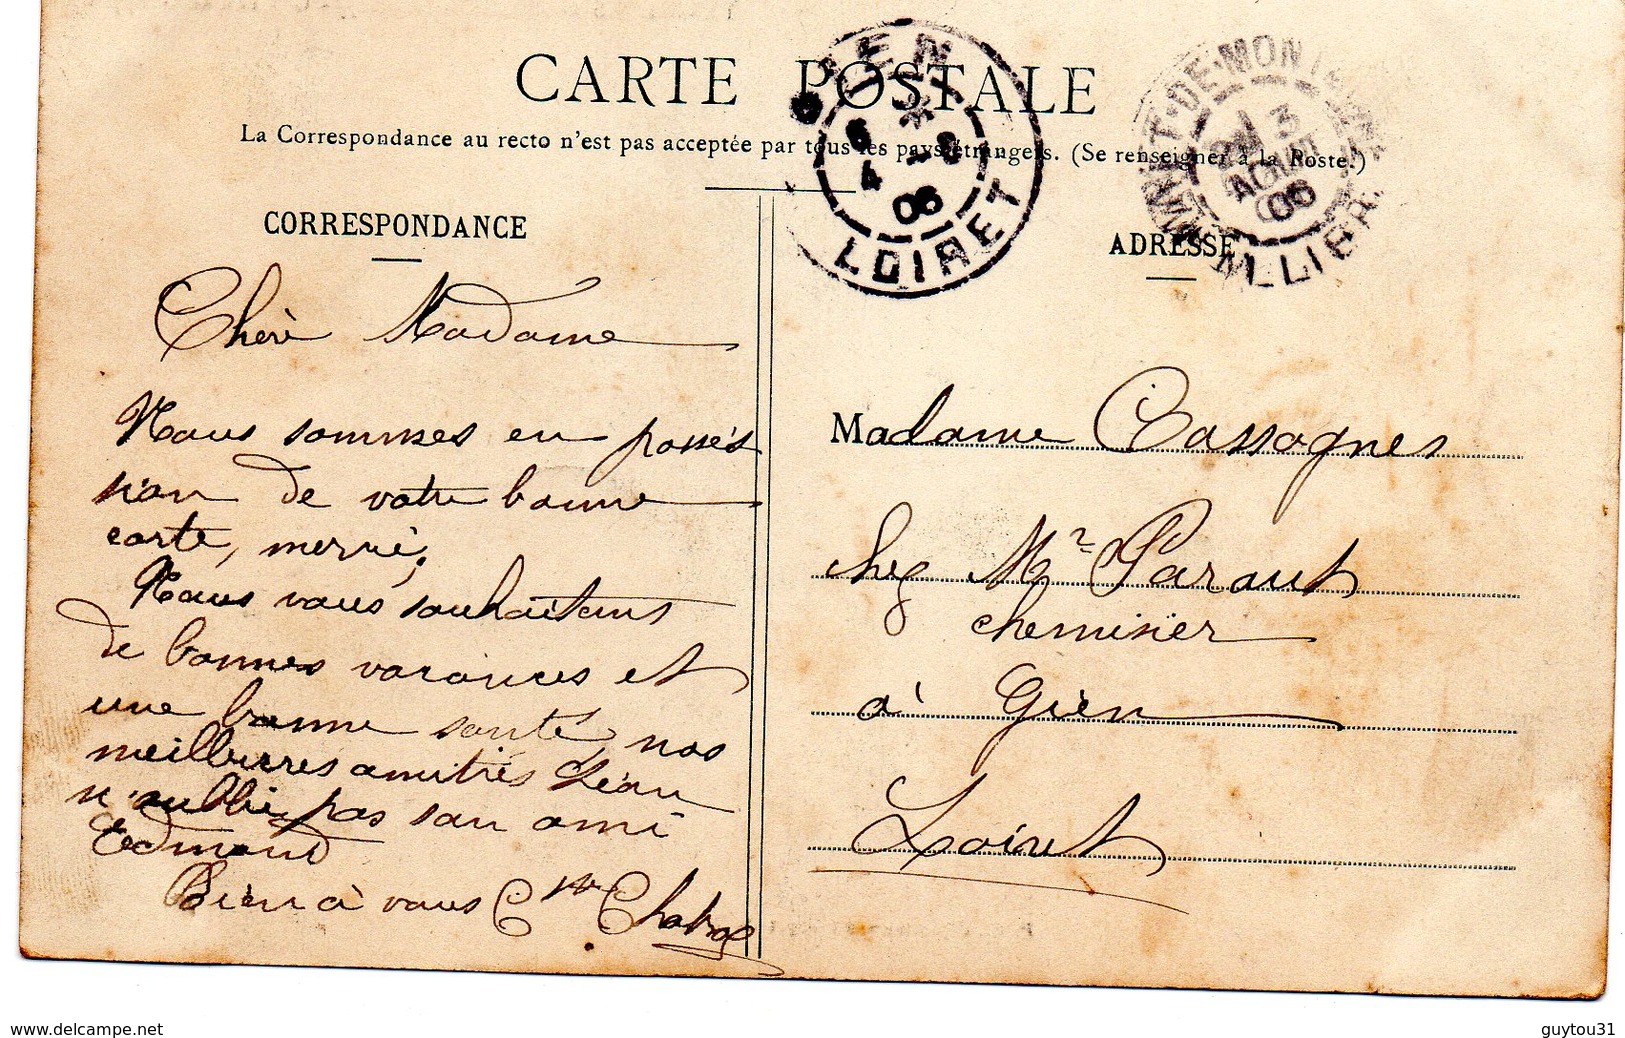 CARTE POSTALE
La Correspondance au recto n'est pas acceptée par tous les pays étrangers. (Se renseigner à la Poste.)
GIEN
6
4 - 8
06
LOIRET
3
AOUT
06
CORRESPONDANCE
ADRESSE
Chère Madame
Nous sommes en posses
sion de votre bonne
carte, merci,
Nous vous souhaitons
de bonnes vacances et
une bonne santé, nos
meilleures amitiés Jean
n'oublie pas son ami
Edmond
Bien à vous
Madame Cassagnes
chez Mr Parout
chemisier
à Gien
Loiret
www.delcampe.net
guytou31